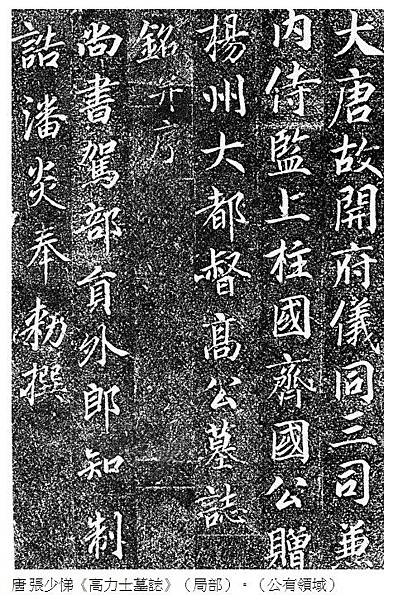 大唐故開府儀同三司兼
内侍監上柱國齊國公贈
楊州大都督高公墓誌
銘并序
尚書駕部員外郎知制
誥潘炎奉勑撰
唐 張少悌《高力士墓誌》（局部）。（公有領域）